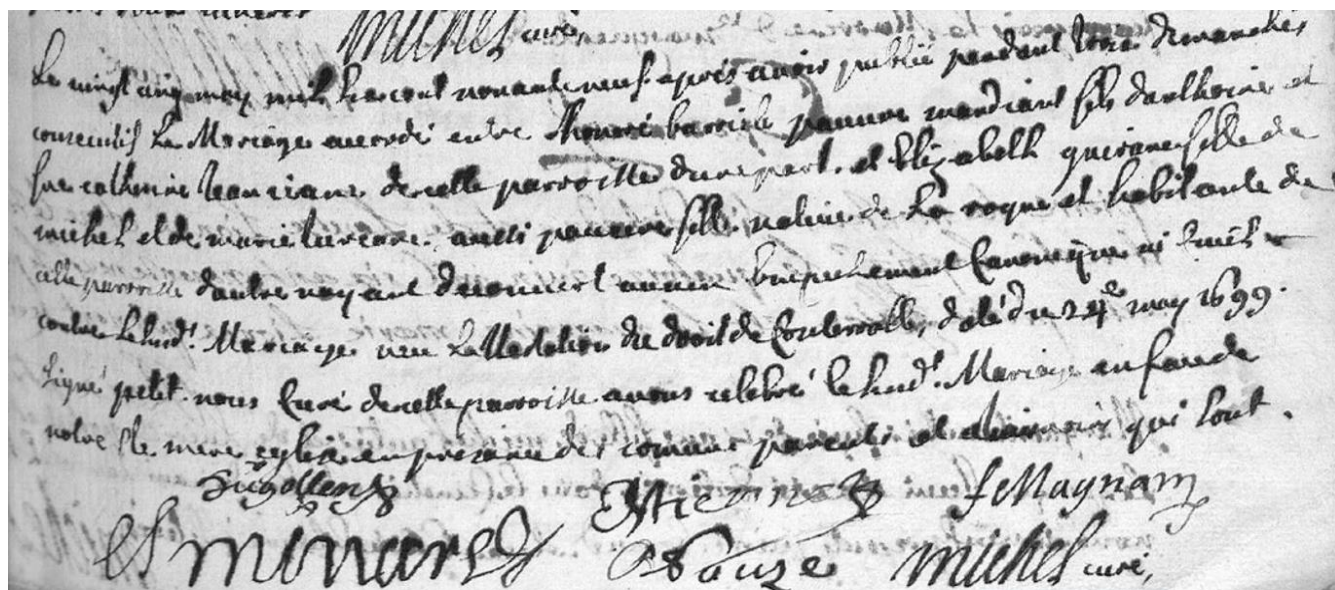 michel curé,
Le vingt cinq may mil six cent nonante neuf apres avoir publié pendant trois dimanches
consecutifs Le Mariage accordé entre honoré barriele pauvre mandiant fils danthoine et
feue catherine de cette parroisse dune part. et Elizabeth guirane fille de
michel et de marie aussi pauvre fille native de La roque et habitante de
cette parroisse dautre nayant decouvert aucun Empechement Canonique ni Civil
contre Ledt. Mariage veu Lattestation du droit de Controlle, daté du 24e may 1699.
Signé petit. nous Curé de cette parroisse avons celebré le susdt. Mariage en face de
notre Ste mere eglise en presence des comuns parents et qui sont.
Mienez f Magnan
minard Pauze michel curé,